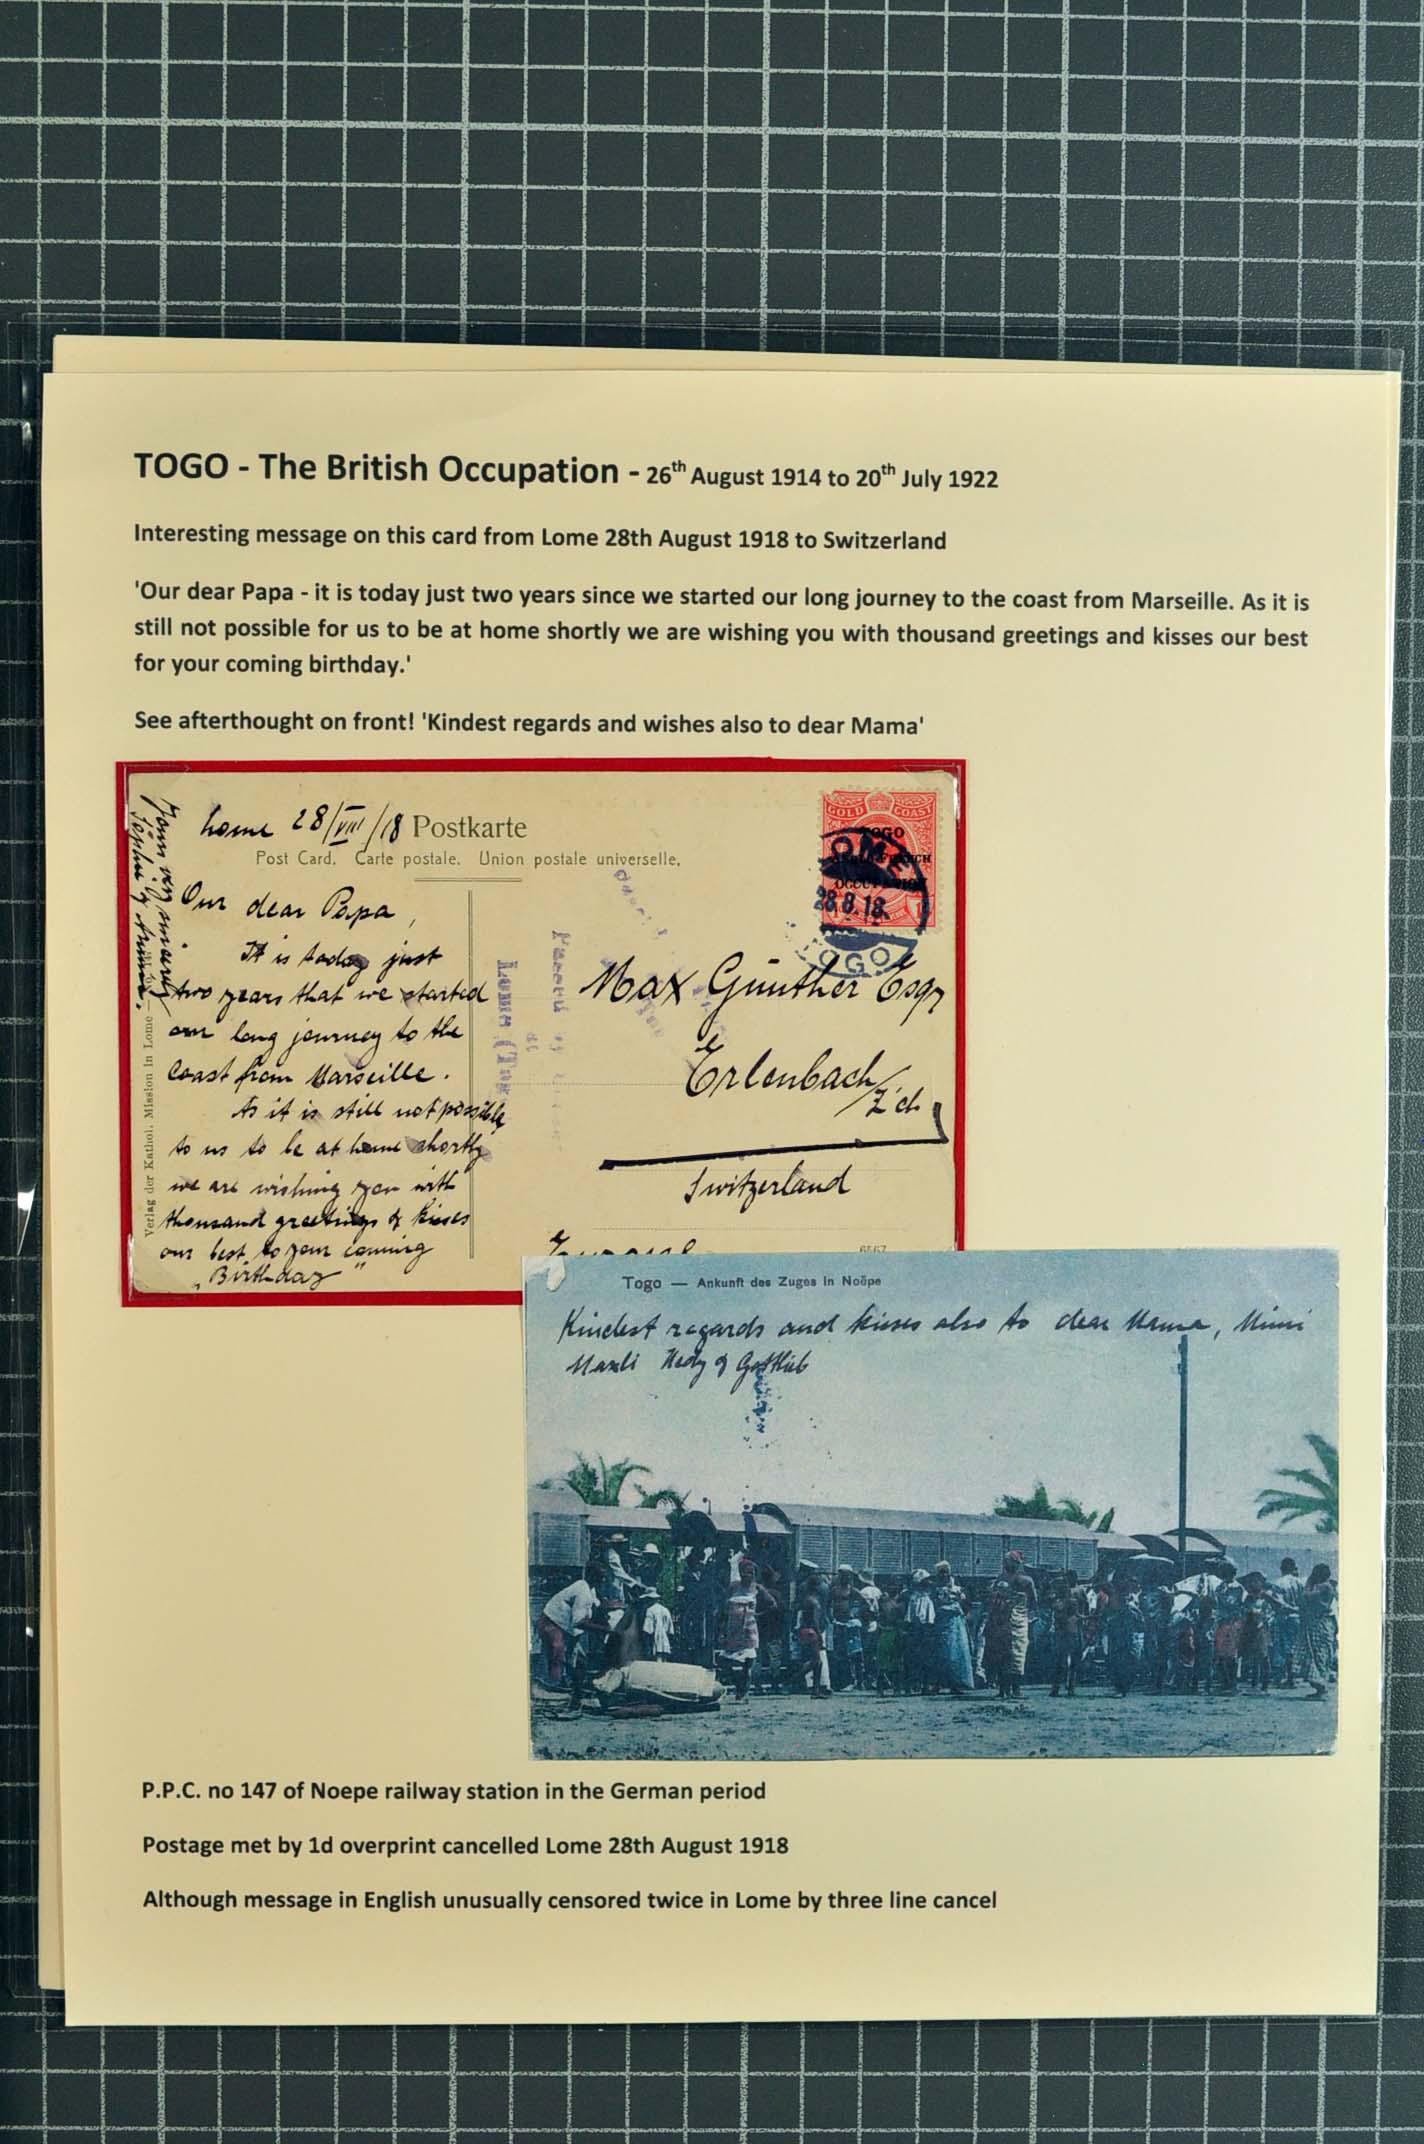 TOGO - The British Occupation - 26th August 1914 to 20th July 1922
Interesting message on this card from Lome 28th August 1918 to Switzerland
'Our dear Papa - it is today just two years since we started our long journey to the coast from Marseille. As it is
still not possible for us to be at home shortly we are wishing you with thousand greetings and kisses our best
for your coming birthday.'
See afterthought on front! 'Kindest regards and wishes also to dear Mama'
Lome 28/VIII/18 Postkarte
Post Card. Carte postale. Union postale universelle.
Our dear Papa,
It is today just
two years that we started
our long journey to the
Coast from Marseille.
As it is still not possible
to us to be at home shortly
we are wishing you with
thousand greetings & kisses
our best to your coming
"Birthday"
Verlag der Kathol. Mission in Lome
GOLD COAST
TOGO
ANGLO-FRENCH
OCCUPATION
LOME
28.8.18.
TOGO
Max Günther Esqr
Erlenbach/Zch
Switzerland
Lome (Tog
Togo — Ankunft des Zuges in Noëpe
Kindest regards and kisses also to dear Mama, Mimi
Maxli Hedy & Gottlieb
P.P.C. no 147 of Noepe railway station in the German period
Postage met by 1d overprint cancelled Lome 28th August 1918
Although message in English unusually censored twice in Lome by three line cancel